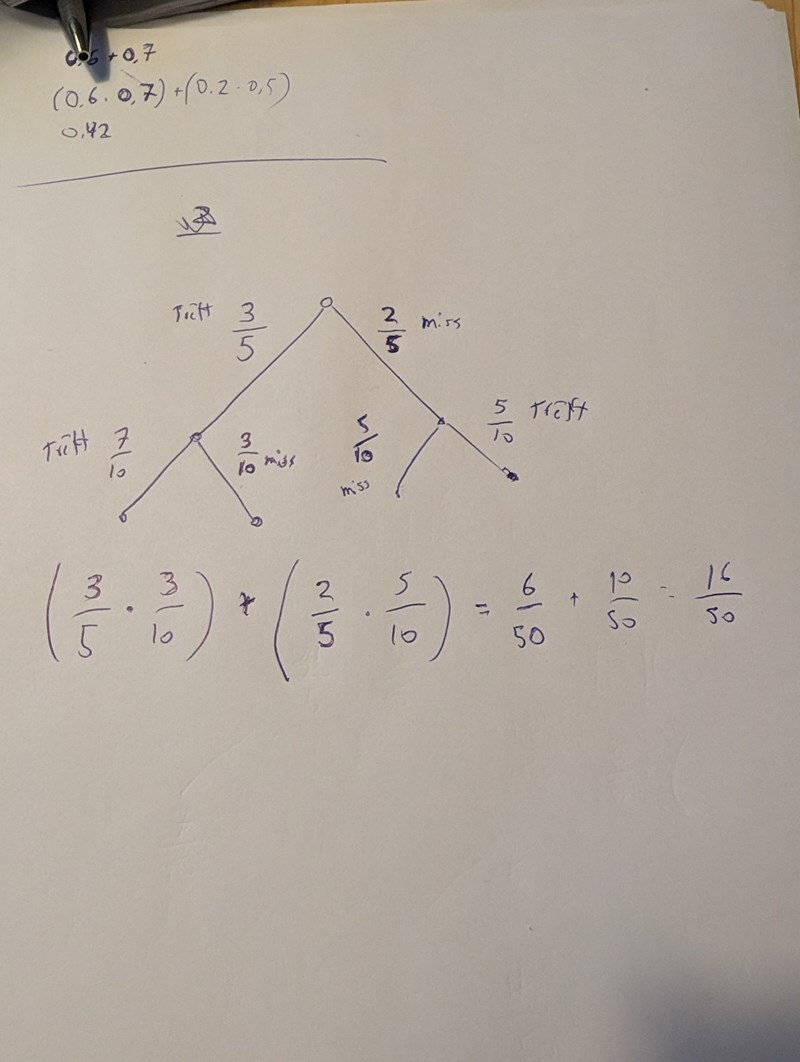 0,6 + 0,7
(0,6 · 0,7) + (0.2 · 0,5)
0,42
Trifft 3/5 2/5 miss
Trifft 7/10 3/10 miss 5/10 miss 5/10 Trifft
(3/5 · 3/10) + (2/5 · 5/10) = 6/50 + 10/50 = 16/50